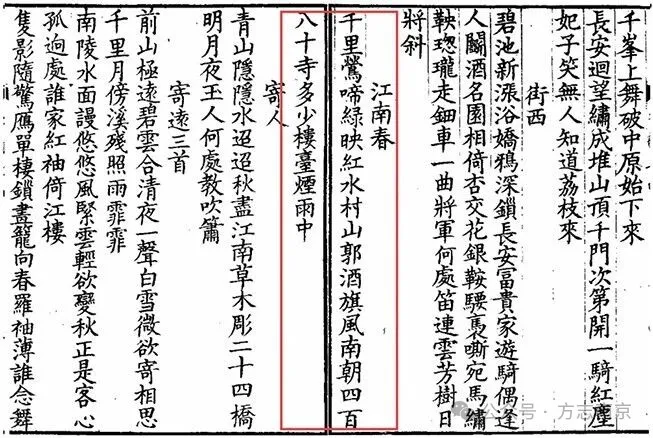 千峯上舞破中原始下來
長安迴望繡成堆山頂千門次第開一騎紅塵
妃子笑無人知道荔枝來
街西
碧池新漲浴嬌鴉深鎖長安富貴家遊騎偶逢
人鬭酒名園相倚杏交花銀鞍騕褭嘶宛馬繡
鞅璁瓏走鈿車一曲將軍何處笛連雲芳樹日
將斜
江南春
千里鶯啼綠映紅水村山郭酒旗風南朝四百
八十寺多少樓臺煙雨中
寄人
青山隱隱水迢迢秋盡江南草木彫二十四橋
明月夜玉人何處教吹簫
寄遠三首
前山極遠碧雲合清夜一聲白雪微欲寄相思
千里月傍溪殘照雨霏霏
南陵水面漫悠悠風緊雲輕欲變秋正是客心
孤迥處誰家紅袖倚江樓
隻影隨驚雁單棲鎖畫籠向春羅袖薄誰念舞
公众号 · 方志南京